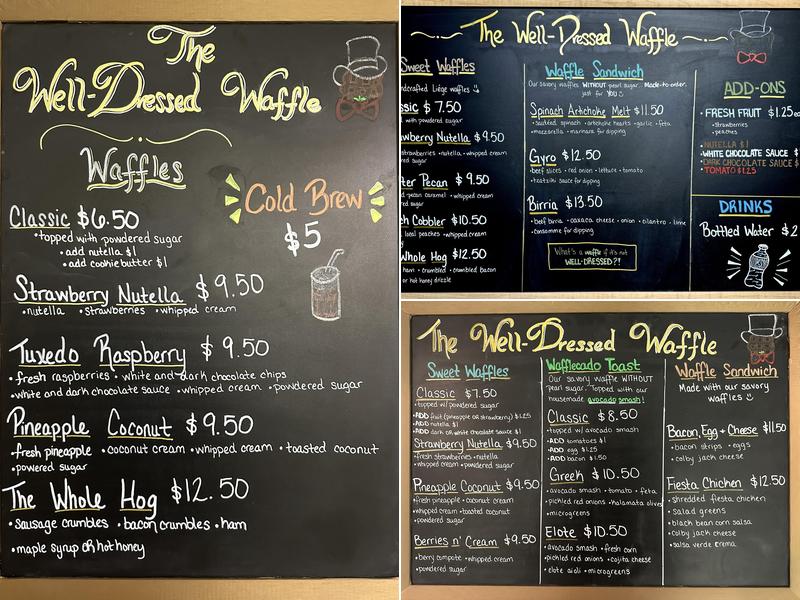 The
Well-Dressed Waffle
Waffles
Cold Brew
$5
Classic $6.50
•topped with powdered sugar
•add nutella $1
•add cookie butter $1
Strawberry Nutella $9.50
•nutella •strawberries •whipped cream
Tuxedo Raspberry $9.50
•fresh raspberries •white and dark chocolate chips
•white and dark chocolate sauce •whipped cream •powdered sugar
Pineapple Coconut $9.50
•fresh pineapple •coconut cream •whipped cream •toasted coconut
•powdered sugar
The Whole Hog $12.50
•sausage crumbles •bacon crumbles •ham
•maple syrup OR hot honey
The Well-Dressed Waffle
Sweet Waffles
Liège waffles
$7.50
with powdered sugar
Nutella $9.50
strawberries •nutella •whipped cream
sugar
Pecan $9.50
pecan caramel •whipped cream
sugar
Cobbler $10.50
local peaches •whipped cream
Whole Hog $12.50
ham •crumbled •crumbled bacon
or hot honey drizzle
Waffle Sandwich
Our savory waffles WITHOUT pearl sugar. Made-to-order,
just for YOU
Spinach Artichoke Melt $11.50
•sauteed spinach •artichoke hearts •garlic •feta
•mozzarella •marinara for dipping
Gyro $12.50
•beef slices •red onion •lettuce •tomato
•tzatziki sauce for dipping
Birria $13.50
•beef birria •oaxaca cheese •onion •cilantro •lime
•consomme for dipping
What's a waffle if it's not
WELL-DRESSED?!
ADD-ONS
•FRESH FRUIT $1.25
•strawberries
•peaches
•NUTELLA $1
•WHITE CHOCOLATE SAUCE $
•DARK CHOCOLATE SAUCE $
TOMATO $1.25
DRINKS
Bottled Water $2
The Well-Dressed Waffle
Sweet Waffles
Classic $7.50
•topped w/ powdered sugar
•ADD fruit (pineapple or strawberry) $1.25
•ADD nutella $1
•ADD dark or white chocolate sauce $1
Strawberry Nutella $9.50
•fresh strawberries •nutella
•whipped cream •powdered sugar
Pineapple Coconut $9.50
•fresh pineapple •coconut cream
•whipped cream •toasted coconut
•powdered sugar
Berries n' Cream $9.50
•berry compote •whipped cream
•powdered sugar
Wafflecado Toast
Our savory waffle WITHOUT
pearl sugar. Topped with our
housemade avocado smash!
Classic $8.50
•topped w/ avocado smash
•ADD tomatoes $1
•ADD egg $1.25
•ADD bacon $1.50
Greek $10.50
•avocado smash •tomato •feta
•pickled red onions •kalamata olives
•microgreens
Elote $10.50
•avocado smash •fresh corn
•pickled red onions •cojita cheese
•elote aioli •microgreens
Waffle Sandwich
Made with our savory
waffles
Bacon, Egg + Cheese $11.50
•bacon strips •eggs
•colby jack cheese
Fiesta Chicken $12.50
•shredded fiesta chicken
•salad greens
•black bean corn salsa
•colby jack cheese
•salsa verde crema